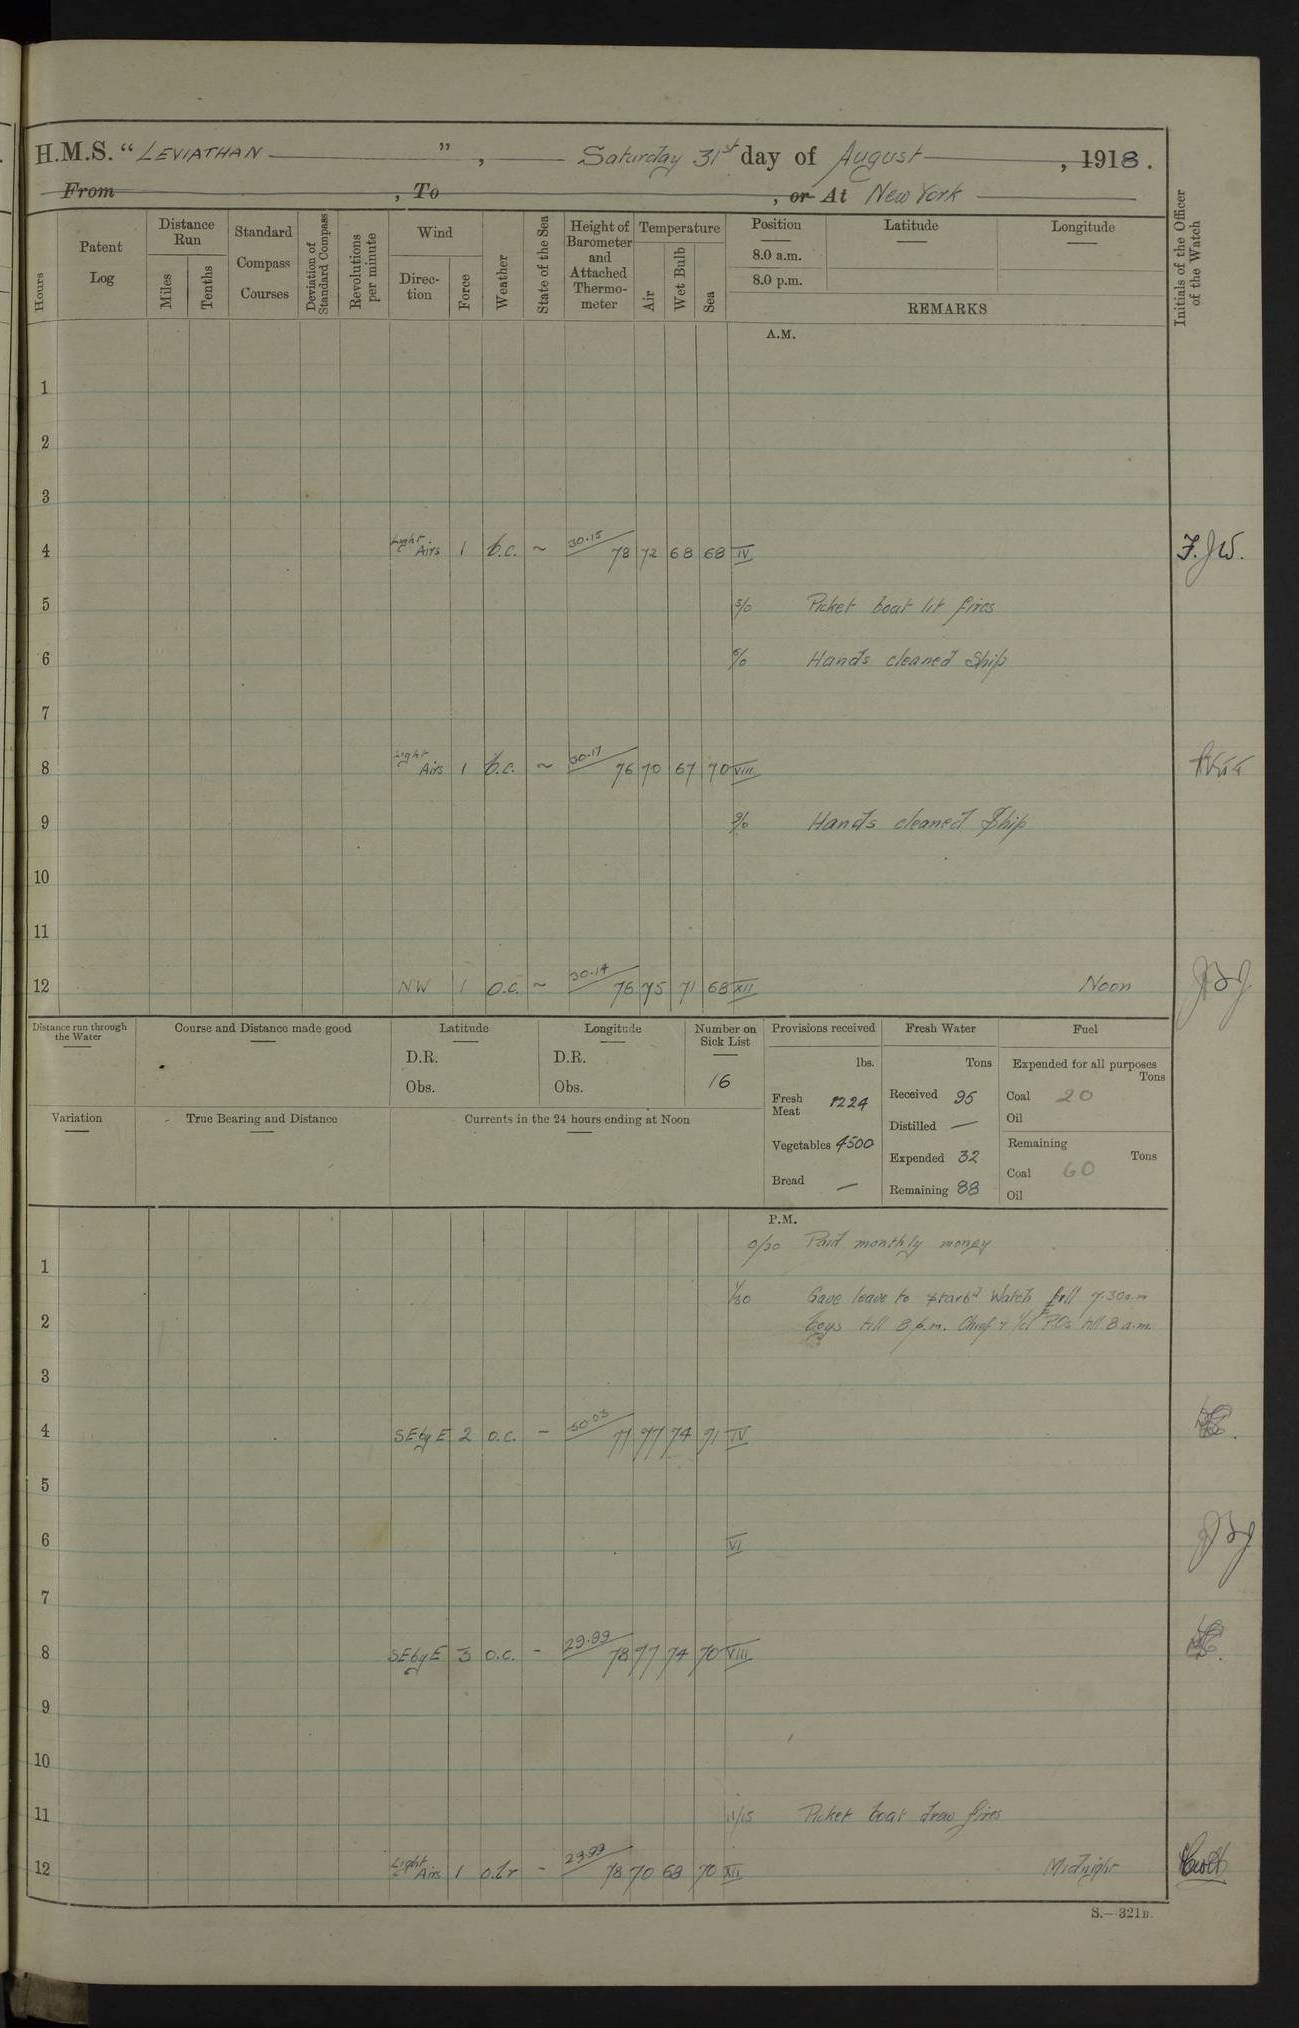 H.M.S. “ LEVIATHAN ” , Saturday 31st day of August , 1918 .
From , To , or At New York
Hours
Patent Log
Distance Run
Miles
Tenths
Standard Compass Courses
Deviation of Standard Compass
Revolutions per minute
Wind
Direc-tion
Force
Weather
State of the Sea
Height of Barometer and Attached Thermo-meter
Temperature
Air
Wet Bulb
Sea
Position
8.0 a.m.
8.0 p.m.
Latitude
Longitude
REMARKS
Initials of the Officer of the Watch
A.M.
1
2
3
4 Light Airs 1 b.c. ~ 30.15 78 72 68 68 IV F.J.W.
5 5/0 Picket boat lit fires
6 6/0 Hands cleaned Ship
7
8 Light Airs 1 b.c. ~ 30.17 76 70 67 70 VIII
9 9/0 Hands cleaned Ship
10
11
12 NW 1 O.C. ~ 30.14 76 75 71 68 XII Noon
Distance run through the Water
Course and Distance made good
Latitude
D.R.
Obs.
Longitude
D.R.
Obs.
Number on Sick List
16
Provisions received
lbs.
Fresh Meat 1224
Vegetables 4500
Bread —
Fresh Water
Tons
Received 95
Distilled —
Expended 32
Remaining 88
Fuel
Expended for all purposes
Tons
Coal 20
Oil
Remaining
Tons
Coal 60
Oil
Variation
True Bearing and Distance
Currents in the 24 hours ending at Noon
P.M.
0/30 Paid monthly money
1
1/30 Gave leave to starbd Watch till 7.30 a.m
2 boys till 8 p.m. Chief & till 8 a.m.
3
4 SEbyE 2 O.C. - 30.03 77 77 74 71 IV
5
6 VI
7
8 SEbyE 3 O.C. - 29.99 78 77 74 70 VIII
9
10
11 11/15 Picket boat drew fires
12 Light Airs 1 - 29.99 78 70 68 70 XII Midnight
S.—321B.